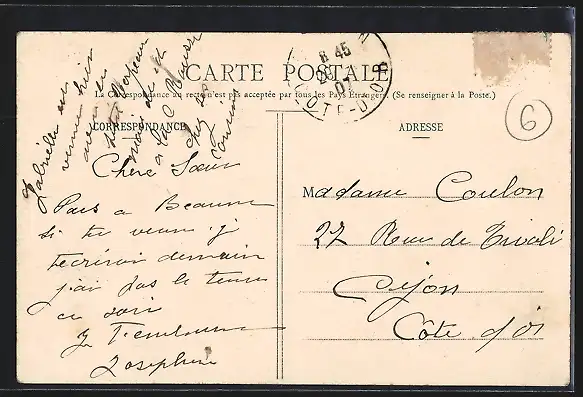 CARTE POSTALE
La Correspondance au recto n'est pas acceptée par tous les Pays Étrangers. (Se renseigner à la Poste.)
CORRESPONDANCE
ADRESSE
8 45
07
COTE-D'OR
6
Gabrielle
venue hier
avec
son
mari
a la
chez
cousine
Chère Sœur
Pars a Beaune
si tu veux j
t'ecrirai demain
j'ai pas le temps
ce soir
Je t'embrasse
Josephine
Madame Coulon
27 Rue de Tivoli
Dijon
Côte d'Or